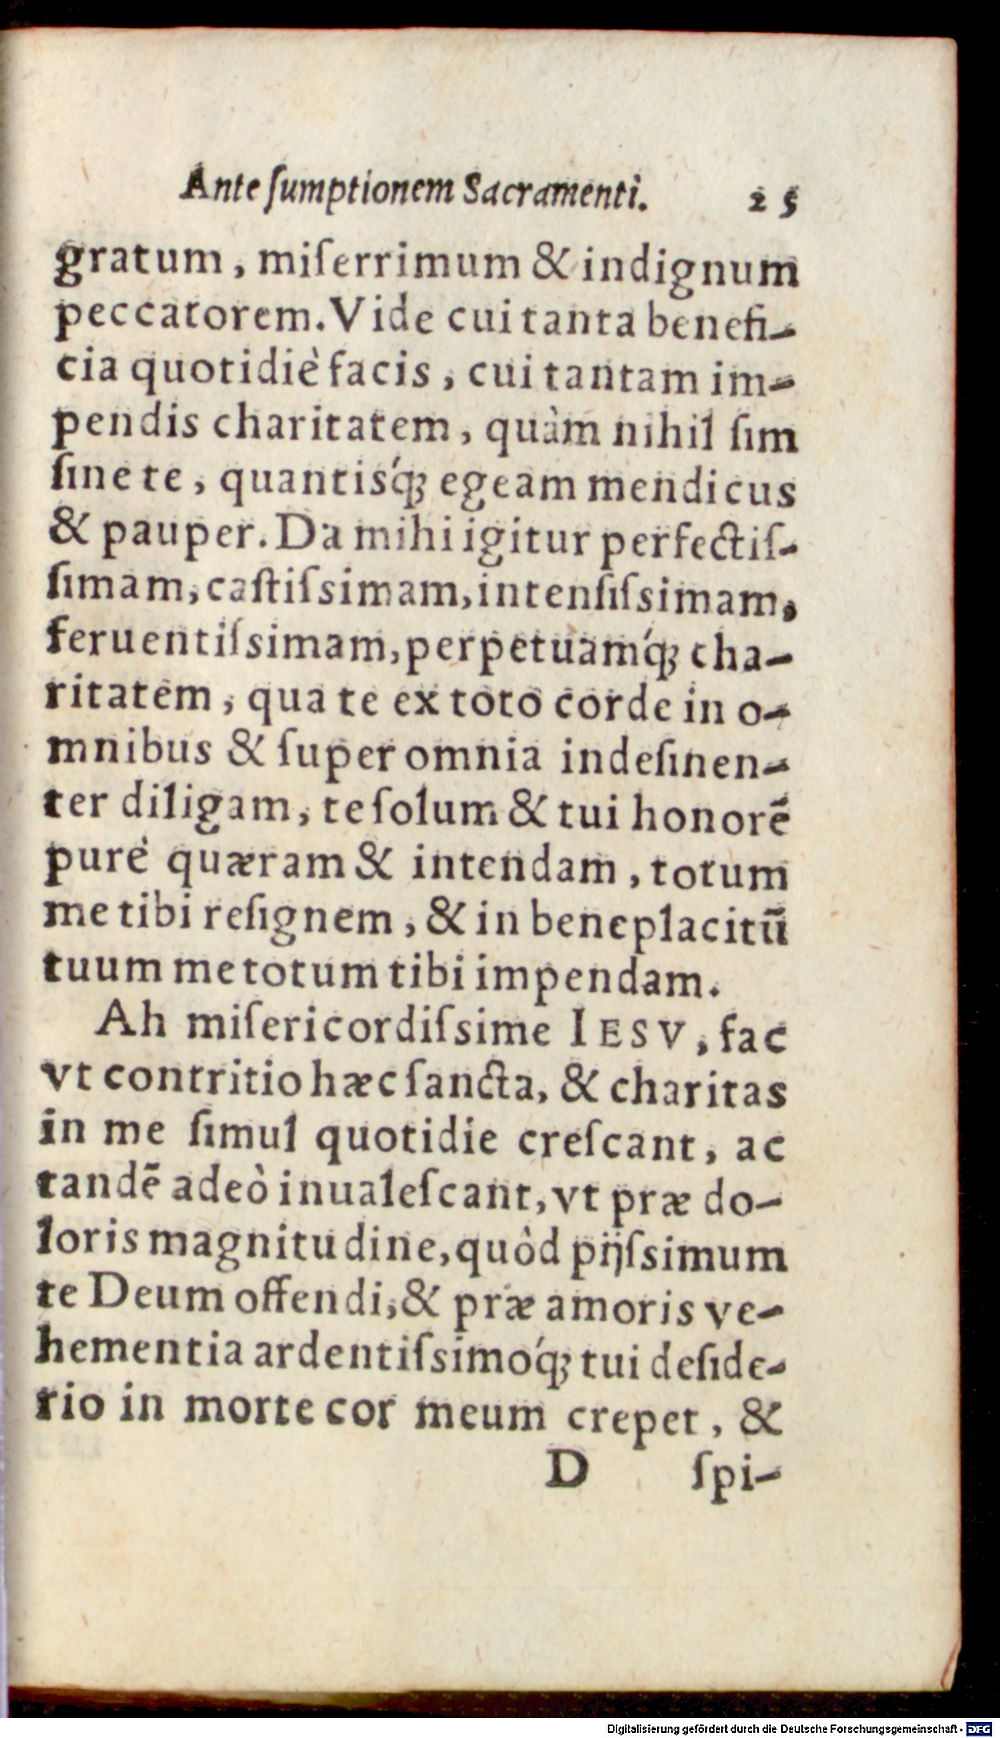 Ante ſumptionem Sacramenti. 25
gratum, miſerrimum & indignum
peccatorem. Vide cui tanta benefi-
cia quotidiè facis, cui tantam im-
pendis charitatem, quàm nihil ſim
ſine te, quantisq́ꝫ egeam mendicus
& pauper. Da mihi igitur perfectiſ-
ſimam, caſtiſsimam, intenſiſsimam,
feruentiſsimam, perpetuamq́ꝫ cha-
ritatem, qua te ex toto corde in o-
mnibus & ſuper omnia indeſinen-
ter diligam, te ſolum & tui honorē
purè quæram & intendam, totum
me tibi reſignem, & in beneplacitū
tuum me totum tibi impendam.
Ah miſericordiſsime IESV, fac
vt contritio hæc ſancta, & charitas
in me ſimul quotidie creſcant, ac
tandē adeò inualeſcant, vt præ do-
loris magnitudine, quòd pijſsimum
te Deum offendi, & præ amoris ve-
hementia ardentiſsimoq́ꝫ tui deſide-
rio in morte cor meum crepet, &
D ſpi-
Digitalisierung gefördert durch die Deutsche Forschungsgemeinschaft - DFG